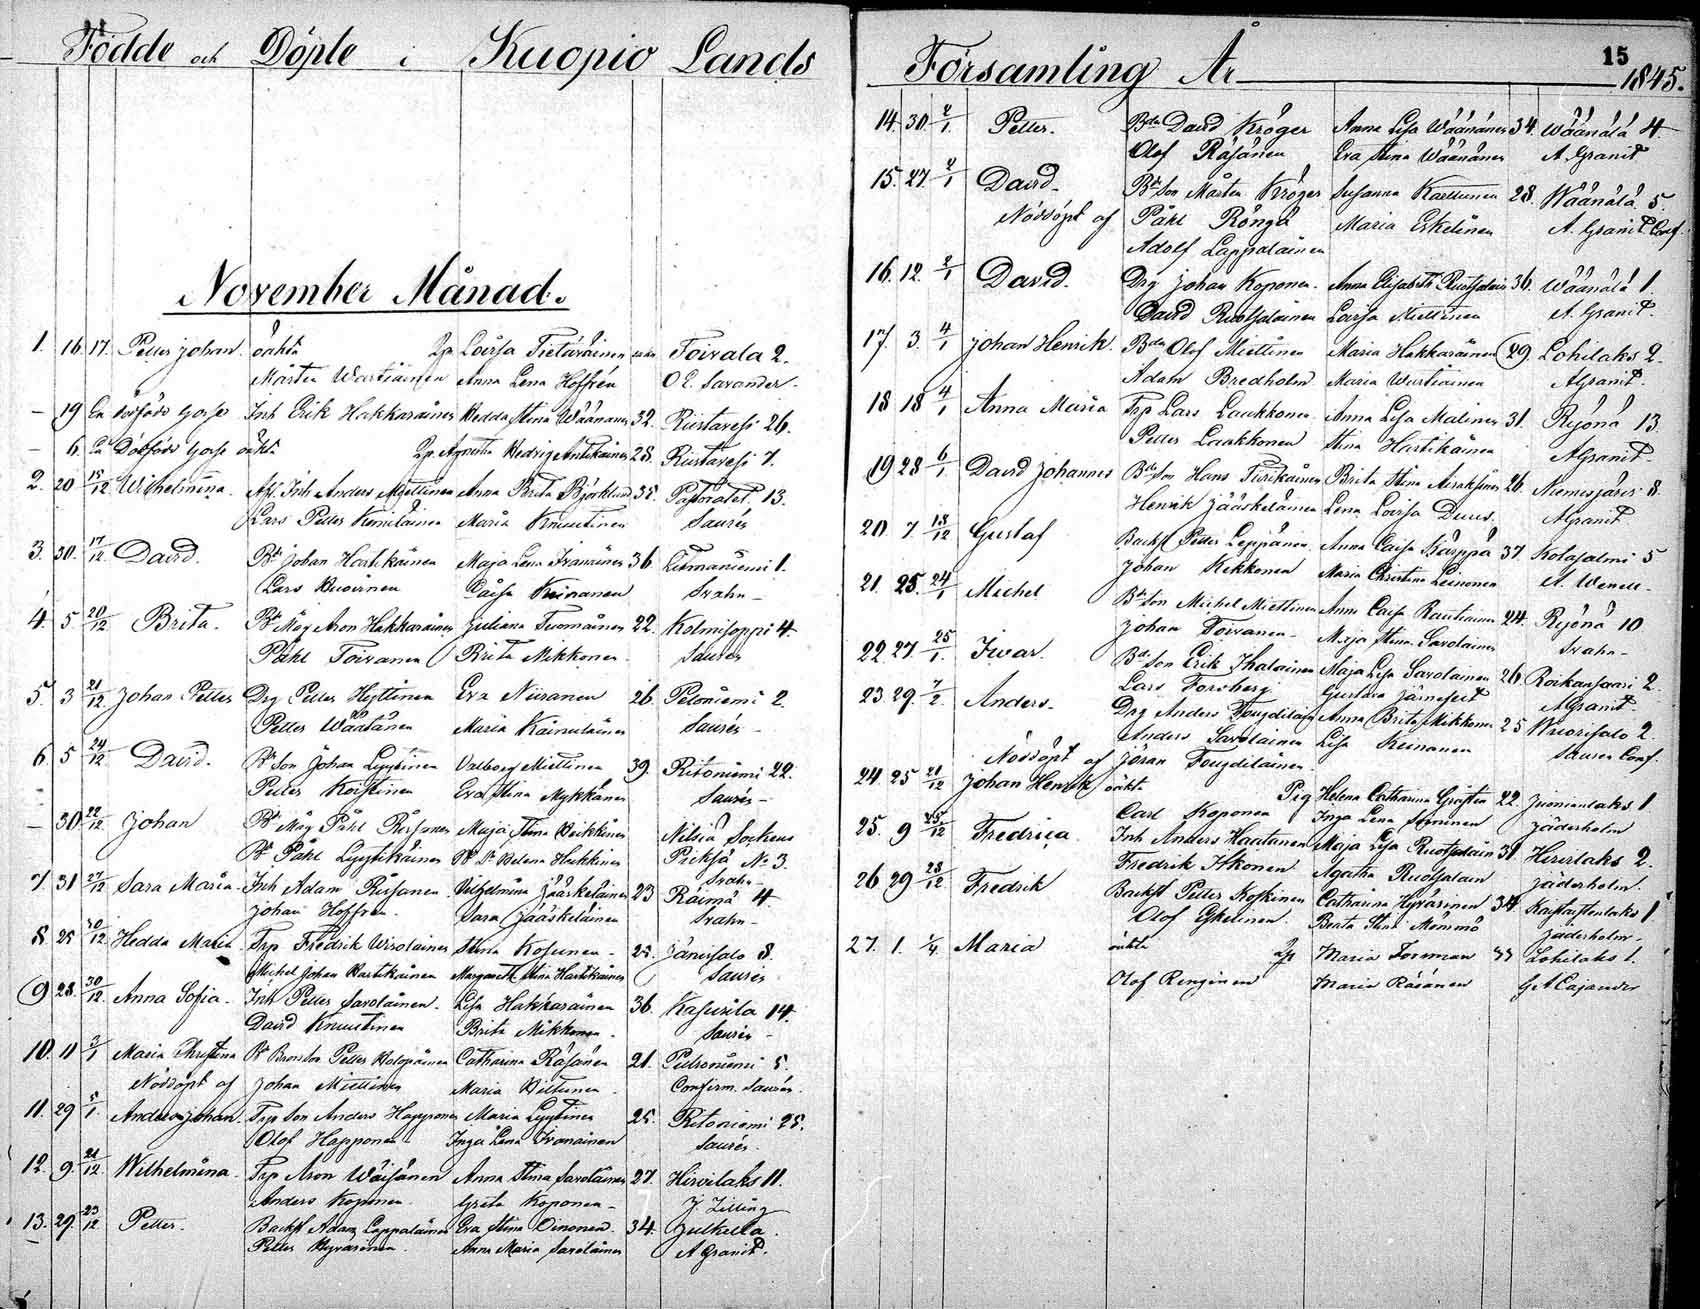 Födde och Döpte i Kuopio Lands
Församling År 1845.
15
November Månad.
1. 16. 17. Petter Johan. oäkta Lovisa Tietäväinen Toivala 2.
Mårten Wartiainen Anna Lena Hoffrén O E. Savander.
– 19 En dödfödd gosse Inh Erik Hakkarainen Hedda Stina Wäänänen 32. Riistavesi 26.
– 6. En Dödfödd gosse oäkta Hedvig Antikainen 28. Riistavesi 7.
2. 20 15/12 Wilhelmina. Inh Anders Miettinen Anna Brita Björklund 35. 13.
Lars Petter Maria Knuutinen Saurén
3. 30. 17/12 David. Bd Johan Hartikainen Maja Lena Ivanainen 36 1.
Lars Caisa Keinanen Svahn –
4. 5 20/12 Brita. Bd Måg Aron Hakkarainen Juliana Tuomainen 22. Kolmisoppi 4
Påhl Toivanen Brita Mikkonen Saurén
5. 3 21/12 Johan Petter Drg Petter Hyttinen Eva Niiranen 26. Petoniemi 2.
Petter Wäätänen Maria Kainulainen Saurén –
6. 5 24/12 David. Bd Son Johan Lyytinen Valborg Miettinen 39. Ritoniemi 22.
Petter Koistinen Eva Stina Mykkänen Saurén –
– 30 22/12 Johan Bd Måg Påhl Maja Stina Nilsiä Sockens
Bd Påhl Lyytikäinen Helena Pieksä No 3.
Svahn –
7. 31 27/12 Sara Maria. Inh Adam Vilhelmina Jääskeläinen 23 Räimä 4.
Johan Hoffren. Sara Jääskeläinen Svahn –
8 25 30/12 Hedda Maria Trp Fredrik Wisolainen Stina Kosunen – 25. Jänissalo 8.
Michel Johan Hartikainen Margareth Stina Hartikainen Saurén
9 28. 30/12. Anna Sofia. Inh Petter Savolainen. Lisa Hakkarainen 36. Kasurila 14.
David Knuutinen Brita Mikkonen. Saurén –
10. 11 3/1 Maria Christina Bd Petter Catharina Räsänen 21. 5.
Nöddöpt af Johan Miettinen Maria Confirm. Saurén.
11. 29 5/1. Anders Johan. Trp Son Anders Happonen Maria Lyytinen 25. Ritoniemi 25.
Olof Happonen Inga Lena Ivanainen Saurén.
12. 9. 21/12. Wilhelmina. Trp Aron Wäisänen Anna Stina Savolainen 27. Hirvilaks 11.
Anders Koponen Greta Koponen – J. Zilling
13. 29. 23/12 Petter. Backst Adam Lappalainen Eva Stina Oinonen. 34. Julkula.
Petter Hyvärinen. Anna Maria Savolainen A Granit.
14. 30. 2/1. Petter. Bdn David Kröger Anna Lisa Wäänänen 34. Wäänälä 4
Olof Räsänen Eva Stina Wäänänen A. Granit
15. 27. 2/1 David – Bd Son Mårten Kröger Susanna Karttunen 28. Wäänälä 5.
Nöddöpt af Påhl Röngä Maria Eskelinen A. Granit Conf.
Adolf Lappalainen
16. 12. 2/1 David. Drg Johan Koponen. Anna Elisabeth Ruotsalain 36. Wäänälä 1.
David Ruotsalainen Lovisa Miettinen A. Granit.
17 3. 4/1 Johan Henrik. Bdn Olof Miettinen Maria Hakkarainen 29. Lohilaks 2.
Adam Bredholm Maria Wartiainen AGranit.
18 18 4/1 Anna Maria Trp Lars Laukkonen Anna Lisa Malinen 31. Ryönä 13
Petter Laakkonen Stina Hartikainen AGranit –
19 28 6/1 David Johannes Bd Son Hans Turikainen Brita Stina 26. Niemisjärvi 8.
Henrik Jääskeläinen Lena Lovisa AGranit
20 7 18/12 Gustaf Backst Petter Leppänen Anna Caisa Kärppä 37 Kotasalmi 5
Johan Kekkonen Maria Christina Leinonen A. Wenell –
21. 25. 24/1 Michel Bd Son Michel Miettinen Anna Caisa Rautiainen 24. Ryönä 10
Johan Toivanen – Maja Stina Savolainen Svahn –
22. 27. 25/1. Iwar. Bd Son Erik Ihalainen Maja Lisa Savolainen 26. 2.
Lars Forsberg Gustava Järnefelt AGranit –
23 29. 7/2. Anders – Drg Anders Fougdilain Anna Brita Mikkonen 25 Wuorisalo 2.
Anders Savolainen Lisa Keinanen Saurén Conf.
Nöddöpt af Jöran Fougdilainen
24 25 21/12 Johan Henrik oäkta Pig Helena Catharina 22. 1
Carl Koponen Inga Lena Jäderholm
25. 9 25/12 Fredrica Inh Anders Haatanen Maja Lisa Ruotsalain 31 Hirvilaks 2.
Fredrik Ikonen Agatha Ruotsalain Jäderholm.
26 29 28/12 Fredrik Backst Petter Koskinen Catharina Hyvärinen 34 1
Olof Eskelinen. Beata Stina Mömmö Jäderholm –
27. 1. Maria oäkta Maria Forsman 33 Lohilaks 1.
Olof Ronginen Maria Räsänen G A Cajander